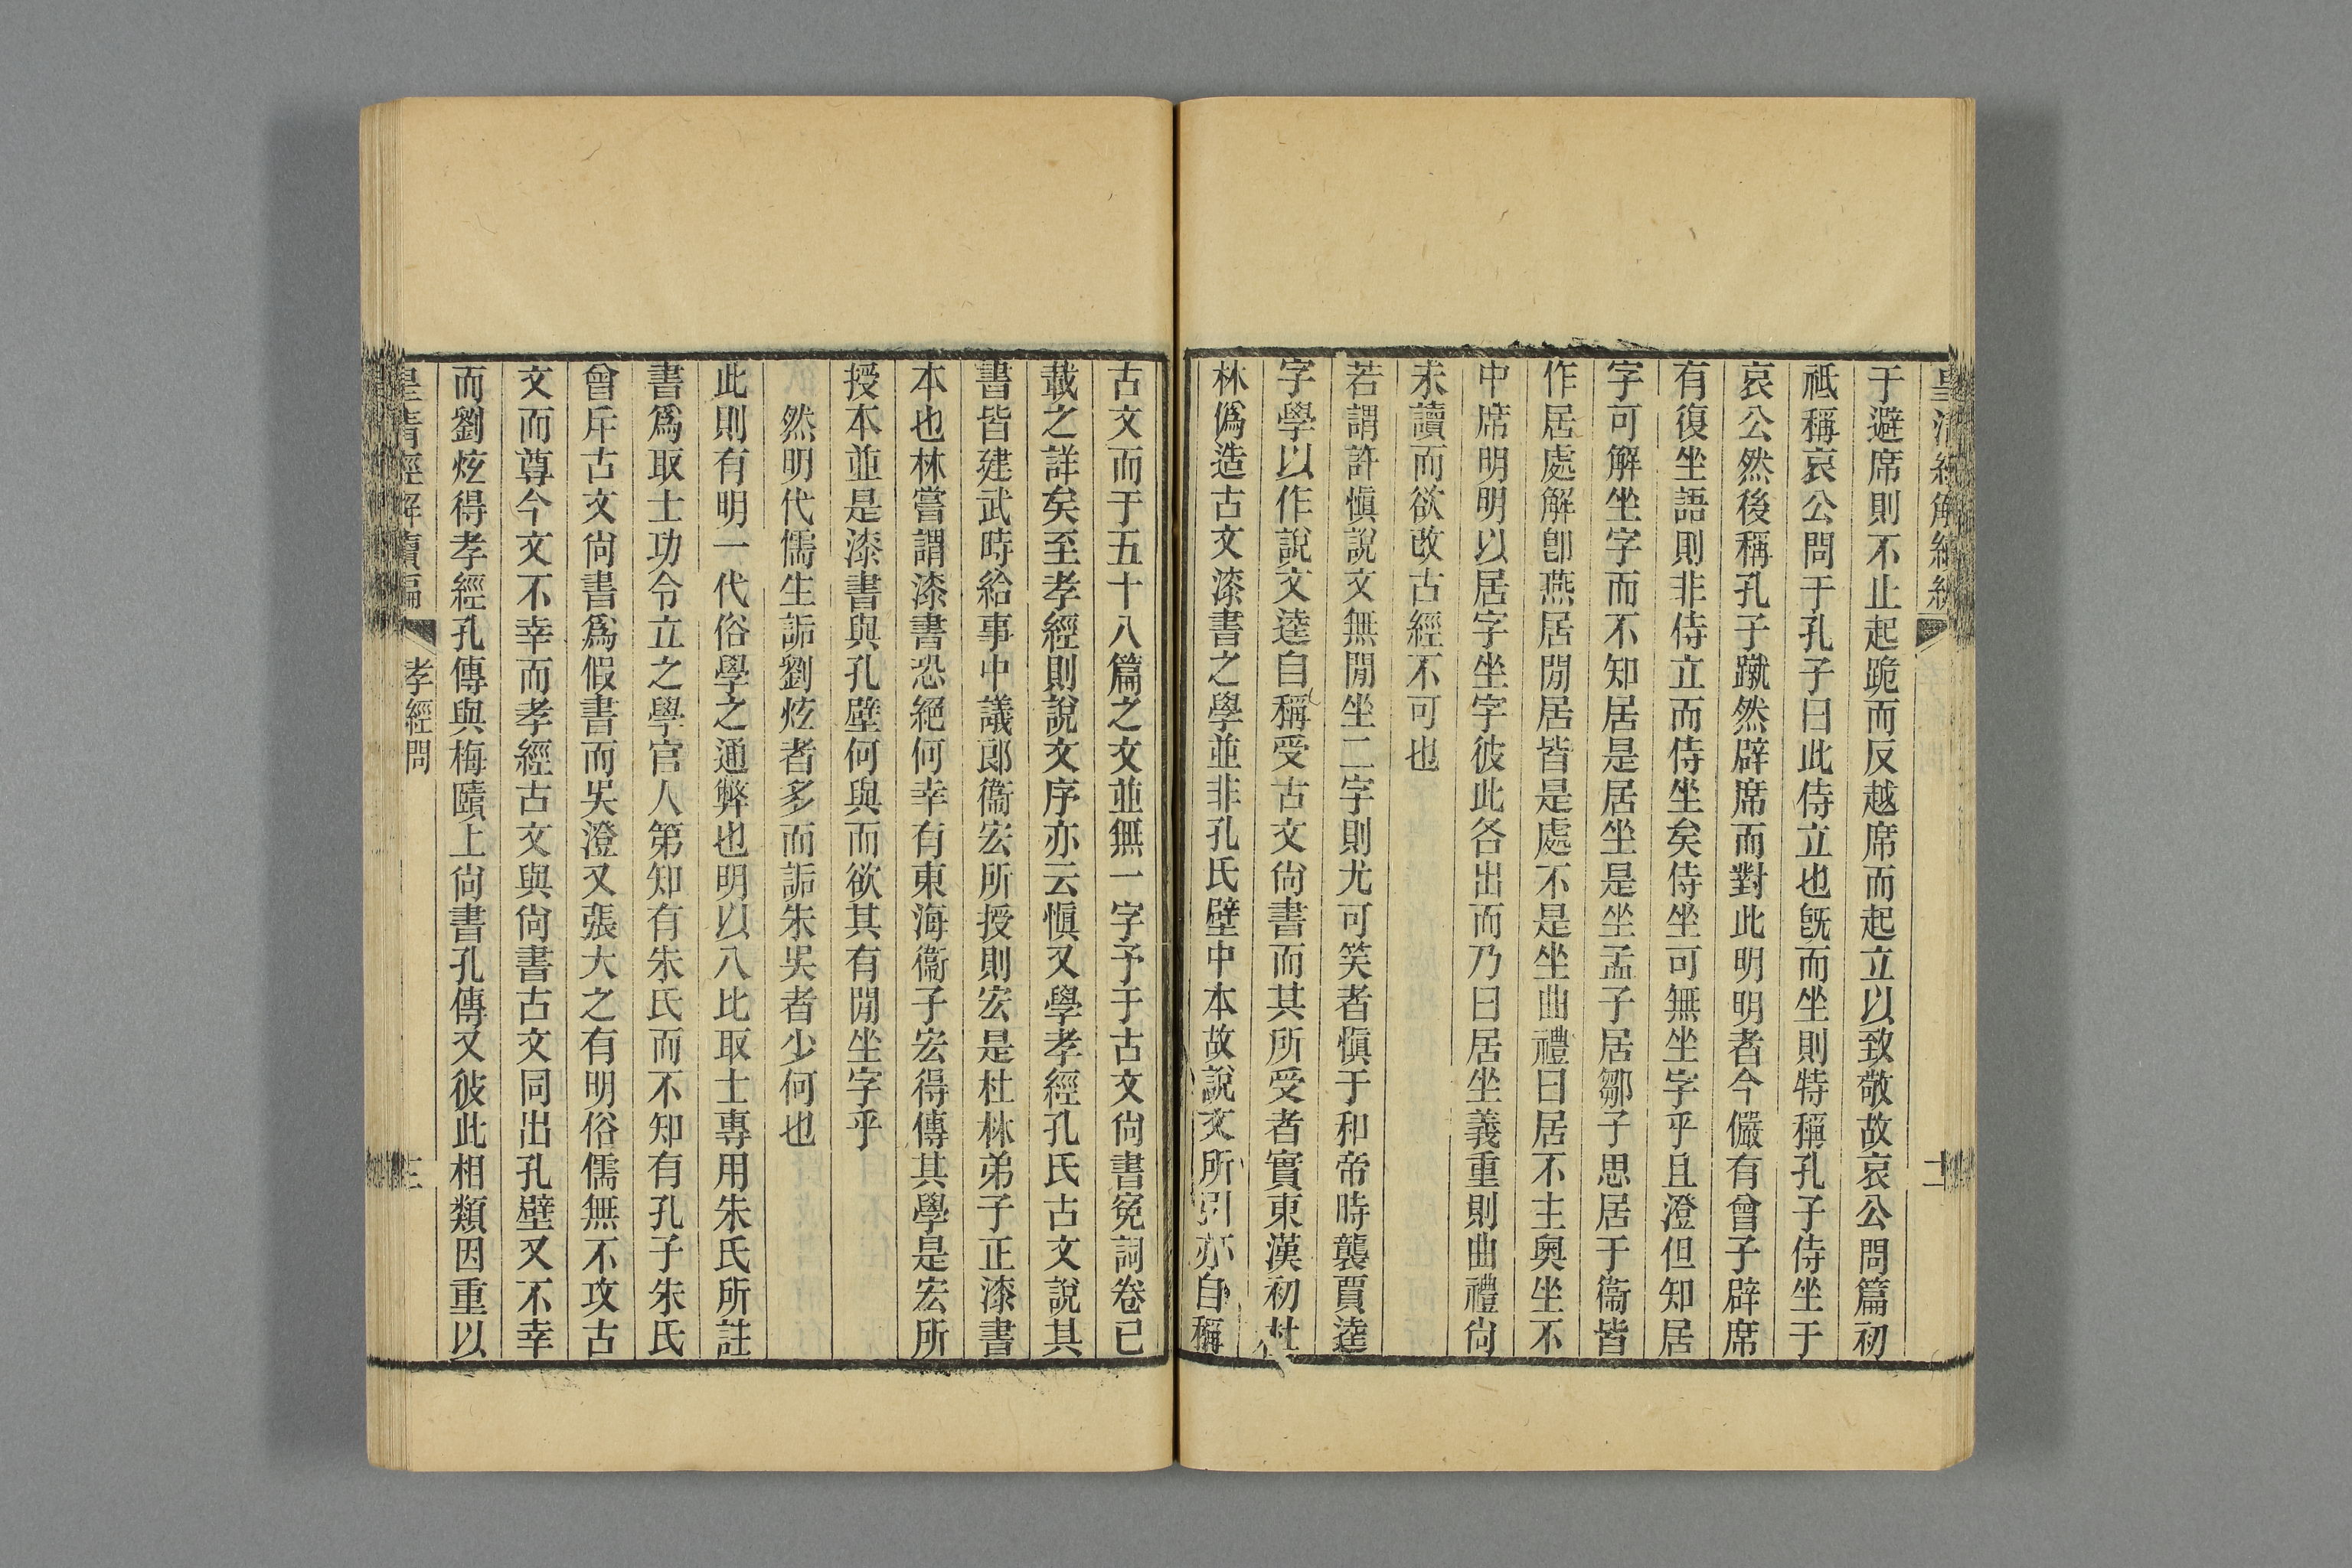 于避席則不止起跪而反越席而起立以致敬故哀公問篇初
祗稱哀公問于孔子曰此侍立也旣而坐則特稱孔子侍坐于
哀公然後稱孔子蹴然辟席而對此明明者今儼有曾子辟席
有復坐語則非侍立而侍坐矣侍坐可無坐字乎且澄但知居
字可解坐字而不知居是居坐是坐孟子居鄒子思居于衞皆
作居處解卽燕居閒居皆是處不是坐曲禮曰居不主奧坐不
中席明明以居字坐字彼此各出而乃曰居坐義重則曲禮尙
未讀而欲改古經不可也
若謂許愼說文無閒坐二字則尤可笑者愼于和帝時襲賈逵
字學以作說文逵自稱受古文尙書而其所受者實東漢初杜
林僞造古文漆書之學並非孔氏壁中本故說文所引亦自稱
古文而于五十八篇之文並無一字予于古文尙書寃詞卷已
載之詳矣至孝經則說文序亦云愼又學孝經孔氏古文說其
書皆建武時給事中議郞衞宏所授則宏是杜林弟子正漆書
本也林嘗謂漆書恐絕何幸有東海衞子宏得傳其學是宏所
授本並是漆書與孔壁何與而欲其有閒坐字乎
然明代儒生詬劉炫者多而詬朱吳者少何也
此則有明一代俗學之通弊也明以八比取士專用朱氏所註
書爲取士功令立之學官人第知有朱氏而不知有孔子朱氏
曾斥古文尙書爲假書而吳澄又張大之有明俗儒無不攻古
文而尊今文不幸而孝經古文與尙書古文同出孔壁又不幸
而劉炫得孝經孔傳與梅賾上尙書孔傳又彼此相類因重以
皇淸經解續編
孝經問
三